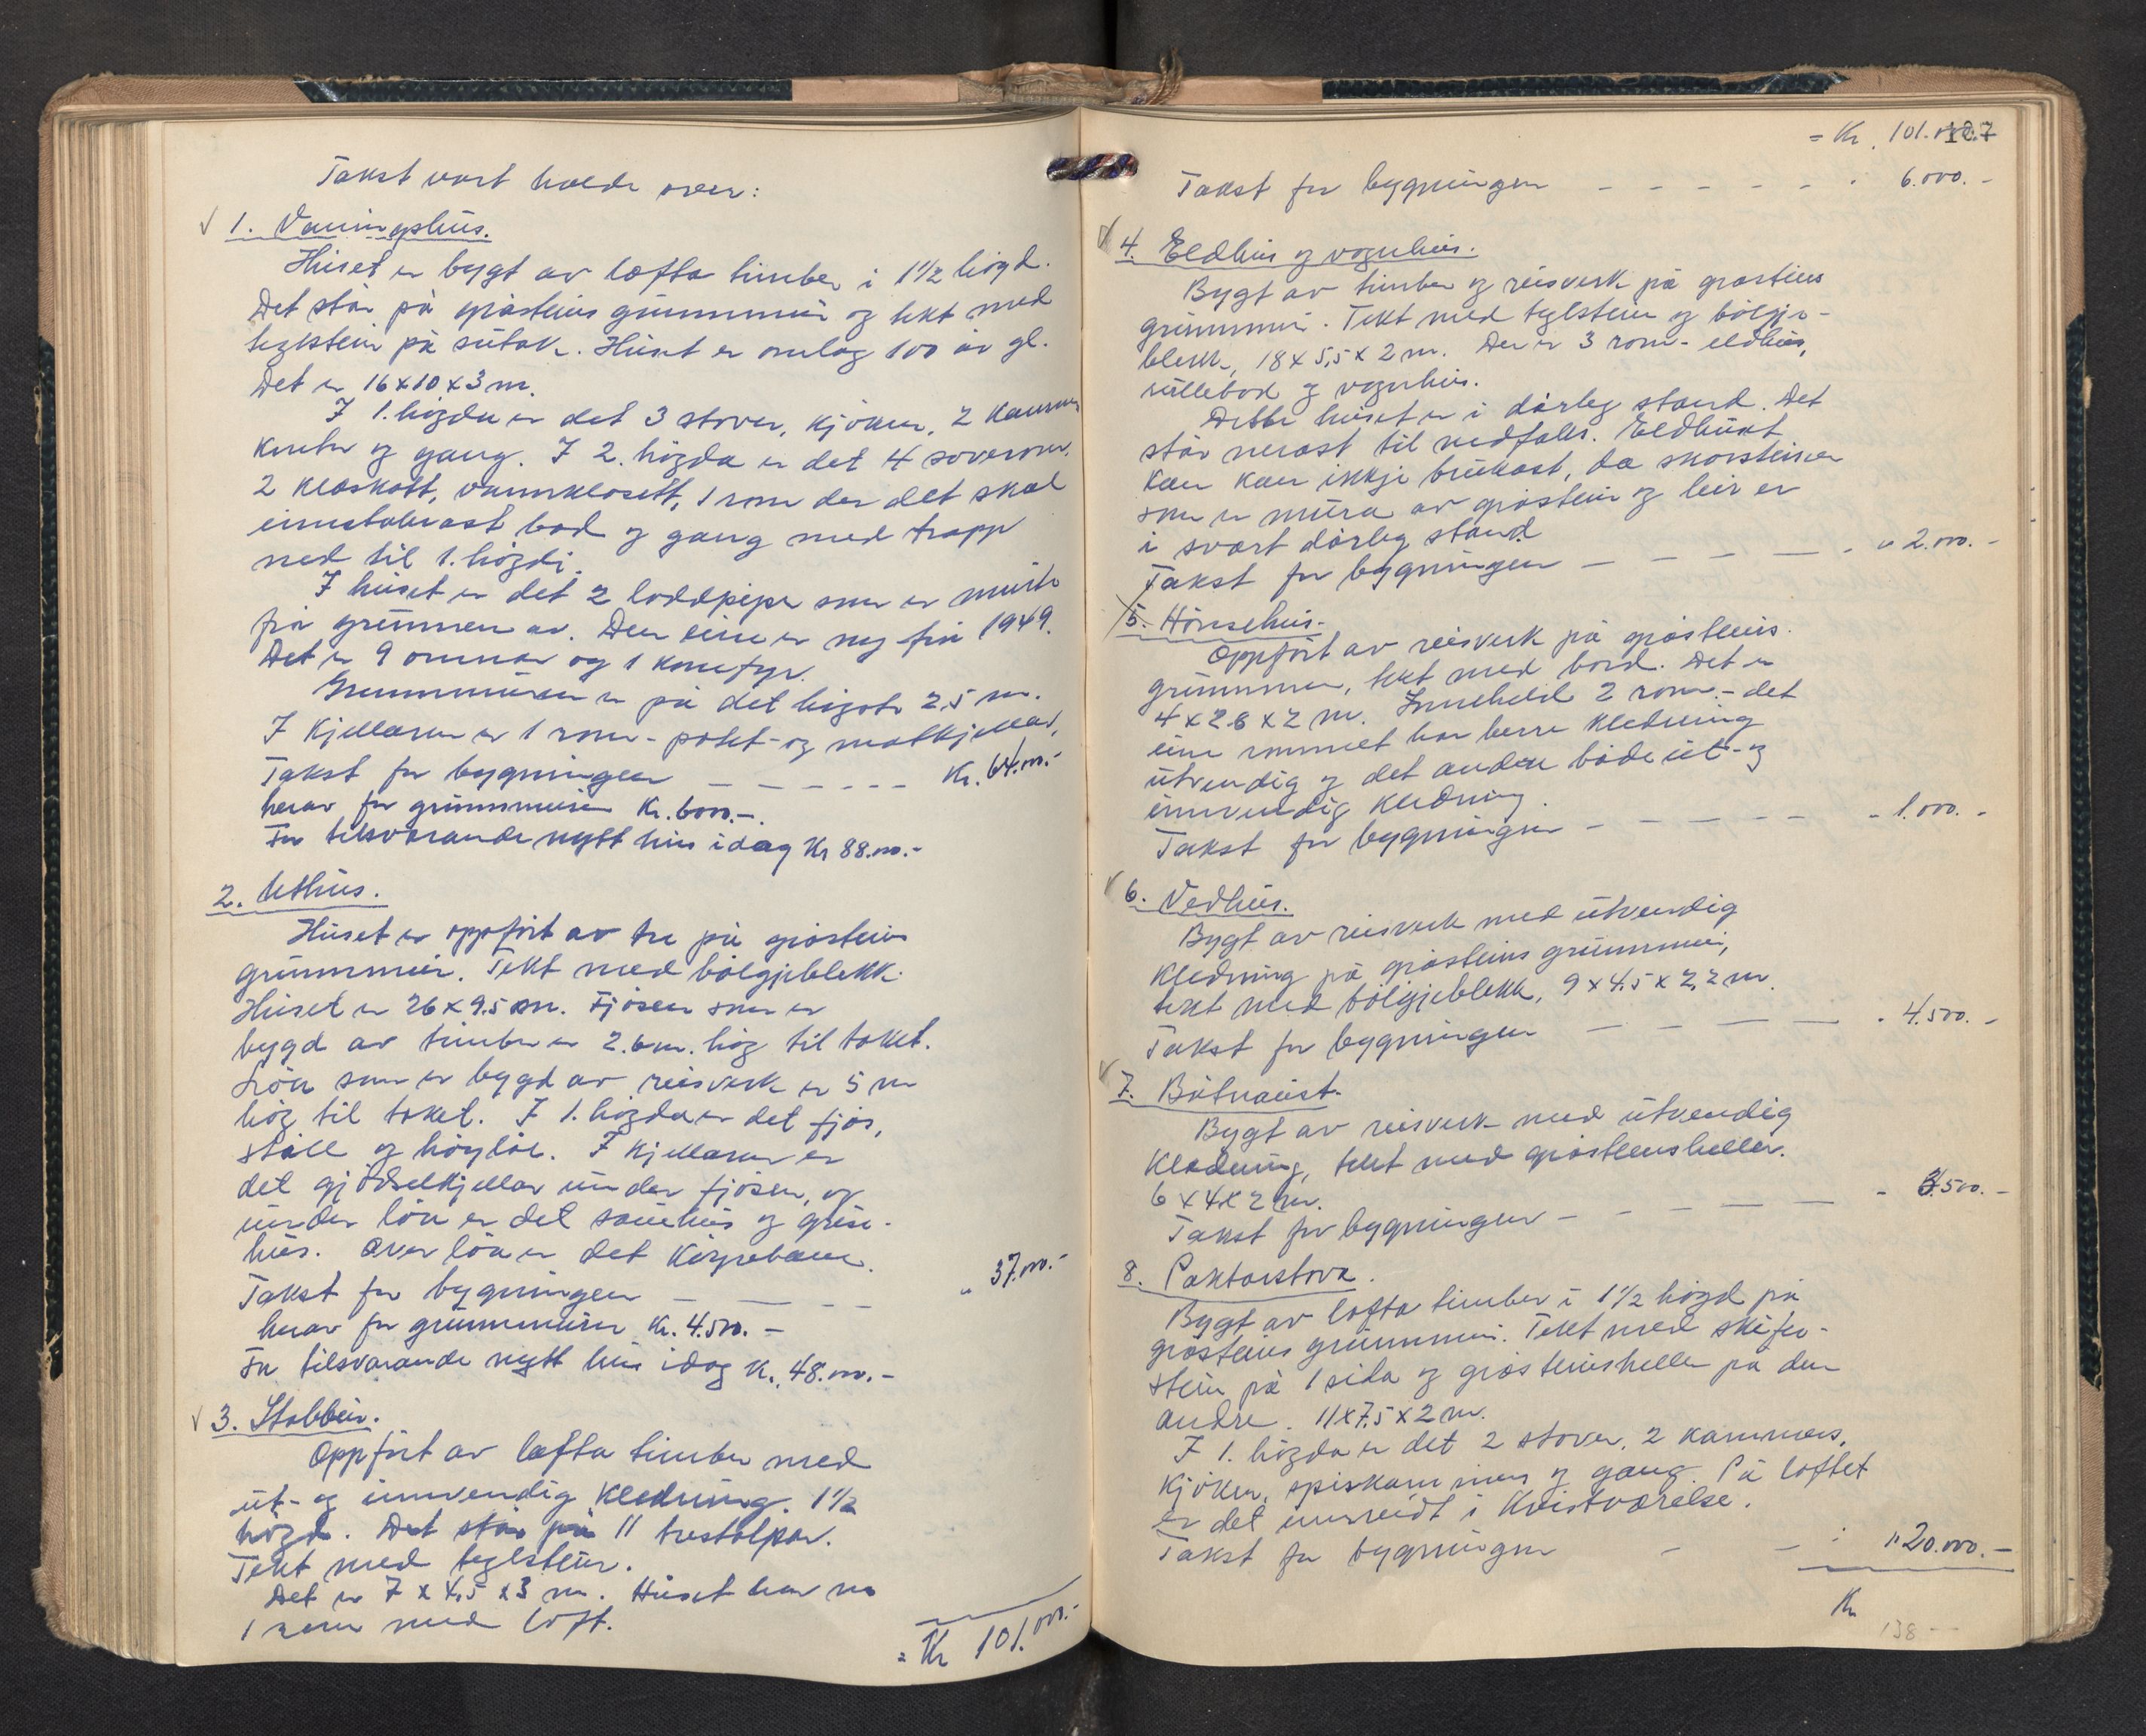 Takst vart halde over:
1. Våningshus.
Huset er bygt av lafta timber i 1½ høgd.
Det står på gråsteins grunnmur og tekt med
teglstein på sutak. Huset er omlag 100 år gl.
Det er 16x10x3 m.
I 1. høgda er det 3 stover, kjøken, 2 kammer
kontor og gang. I 2. høgda er det 4 soverom,
2 kleskott, vannklosett, 1 rom der det skal
innstalerast bad og gang med trapp
ned til 1. høgdi.
I huset er det 2 loddpiper som er murte
frå grunnen av. Den eine er ny frå 1949.
Det er 9 omnar og 1 komfyr.
Grunnmuren er på det høgste 2,5 m.
I kjellaren er 1 rom - potet- og matkjellar,
Takst for bygningen - - - - - - Kr. 64.000.-
herav for grunnmuren Kr. 6000.-.
For tilsvarande nytt hus idag Kr 88.000.-
2. Uthus.
Huset er oppført av tre på gråsteins
grunnmur. Tekt med bølgjeblekk.
Huset er 26x9.5 m. Fjøsen som er
bygd av timber er 2.6 m. høg til taket.
Løa som er bygd av reisverk er 5 m
høg til taket. I 1. høgda er det fjøs,
stall og høyløe. I kjellaren er
det gjødselkjellar under fjøsen, og
under løa er det sauehus og grise-
hus. Over løa er det køyrebane.
Takst for bygningen - - - - „ 37.000.-
herav for grunnmuren Kr. 4.500.-
For tilsvarande nytt hus idag Kr. 48.000.-
3. Stabbur.
Oppført av lafta timber med
ut- og innvendig kledning. 1½
høgd. Det står på 11 trestolpar.
Tekt med teglstein.
Det er 7 x 4,5 x 3 m. Huset har no
1 rom med loft.
= Kr 101.000.-
127
= Kr. 101.000.-
Takst for bygningen - - - - - - - 6.000.-
4. Eldhus og vognhus.
Bygt av timber og reisverk på gråsteins
grunnmur. Tekt med teglstein og bølgje-
blekk, 18x5,5x2 m. Der er 3 rom - eldhus,
rullebod og vognhus.
Dette huset er i dårleg stand. Det
står nerast til nedfalls. Eldhuset
kan kan ikkje brukast, da skorsteinen
som er mura av gråstein og leir er
i svært dårleg stand
Takst for bygningen - - - - - „ 2.000.-
5. Hønsehus.
Oppført av reisverk på gråsteins
grunnmur, tekt med bord. Det er
4x2.8x2 m. Inneheld 2 rom - det
eine rommet har berre kledning
utvendig og det andre både ut- og
innvendig kledning.
Takst for bygningen - - - - - - „ 1.000.-
6. Vedhus.
Bygt av reisverk med utvendig
kledning på gråsteins grunnmur,
tekt med bølgjeblekk, 9x4.5x2,2 m.
Takst for bygningen - - - - - „ 4.500.-
7. Båtnaust.
Bygt av reisverk med utvendig
kledning, tekt med gråsteinsheller.
6x4x2 m.
Takst for bygningen - - - - - - 3.500.-
8. Paktarstova.
Bygt av lafta timber i 1½ høgd på
gråsteins grunnmur. Tekt med skifer-
stein på 1 sida og gråsteinsheller på den
andre. 11x7,5x2 m.
I 1. høgda er det 2 stover, 2 kammers,
kjøken, spiskammer og gang. På loftet
er det innreidt i kvistværelse.
Takst for bygningen - - - „ 20.000.-
Kr
138 -